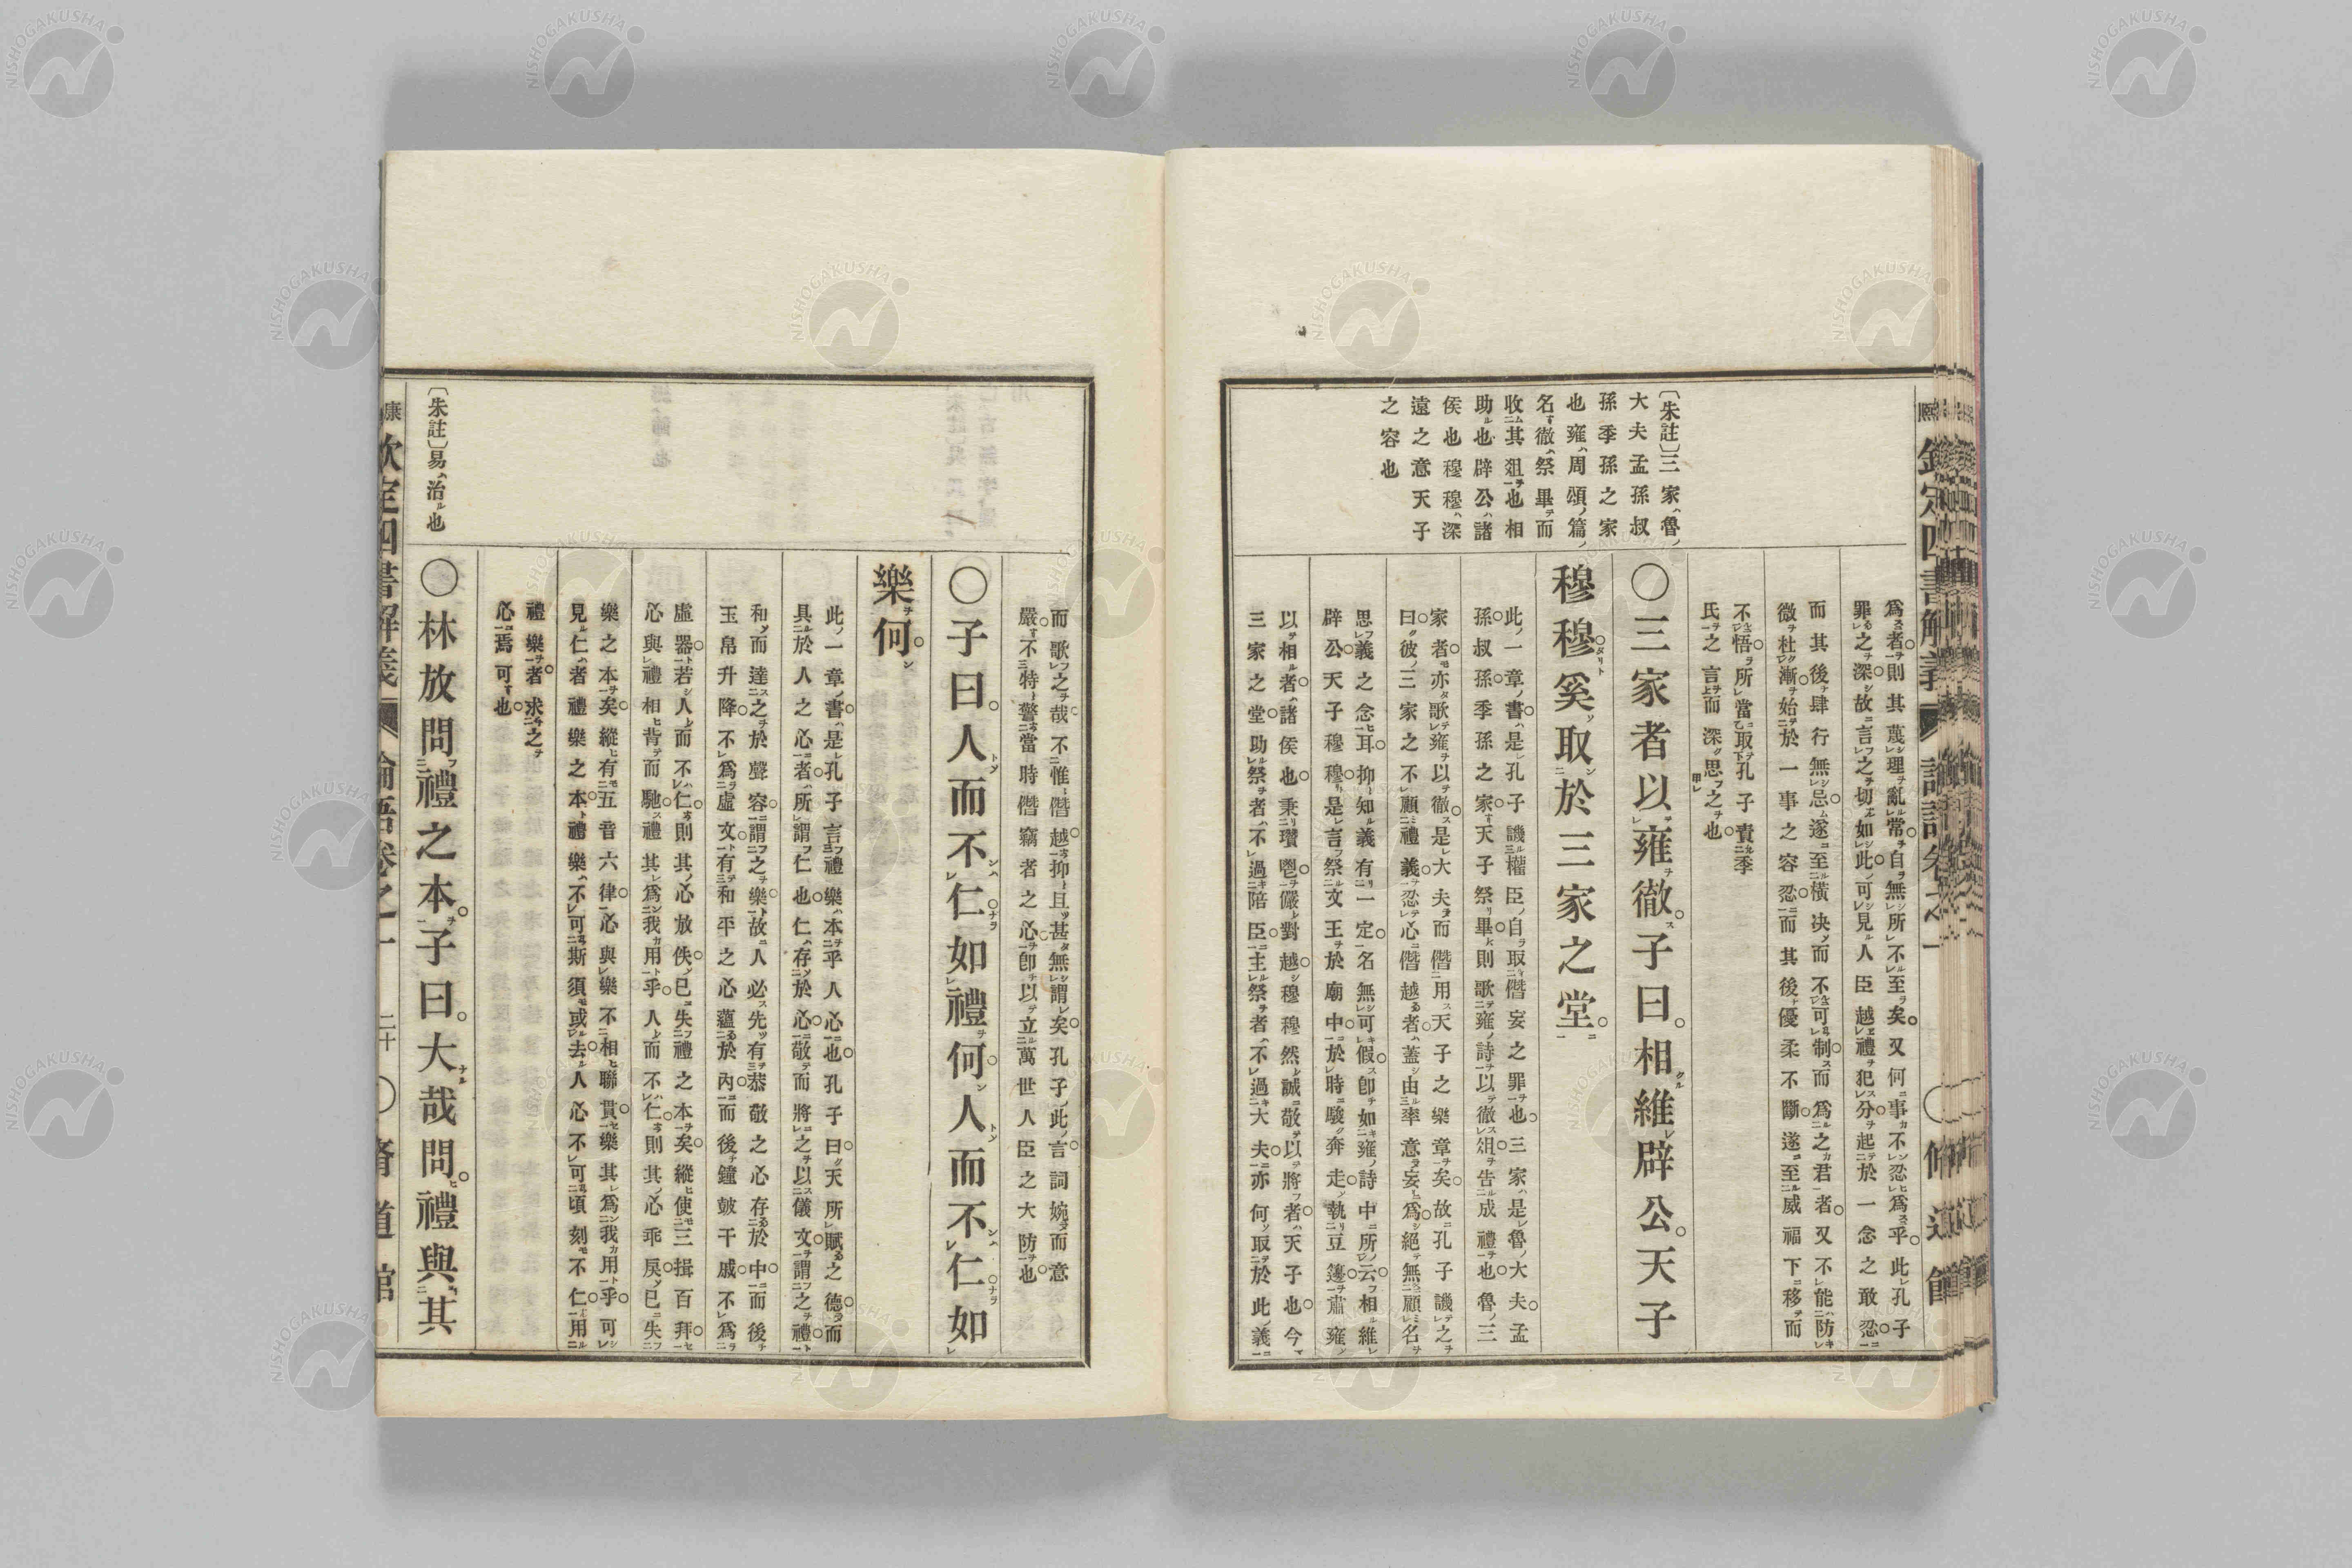 爲者則其蔑理亂常自無所不至矣又何事不忍爲乎此孔子
罪之深故言之切如此可見人臣越禮犯分起於一念之敢忍
而其後肆行無忌遂至橫决而不可制而爲之君者又不能防
微杜漸始於一事之容忍而其後優柔不斷遂至威福下移而
不悟所當取孔子責季
氏之言而深思之也
〔朱註〕三家魯
大夫孟孫叔
孫季孫之家
也雍周頌篇
名徹祭畢而
收其俎也相
助也辟公諸
侯也穆穆深
遠之意天子
之容也
〇三家者以雍徹子曰相維辟公天子
穆穆奚取於三家之堂
此一章書是孔子譏權臣自取僭妄之罪也三家是魯大夫孟
孫叔孫季孫之家天子祭畢則歌雍詩以徹俎告成禮也魯三
家者亦歌雍以徹是大夫而僭用天子之樂章矣故孔子譏之
曰彼三家之不顧禮義忍心僭越者蓋由率意妄爲絕無顧名
思義之念耳抑知義有一定名無可假卽如雍詩中所云相維
辟公天子穆穆是言祭文王於廟中於時駿奔走執豆籩肅雍
以相者諸侯也秉瓚鬯儼對越穆穆然誠敬以將者天子也今
三家之堂助祭者不過陪臣主祭者不過大夫亦何取於此義
而歌之哉不惟僭越抑且甚無謂矣孔子此言詞婉而意
嚴不特警當時僭竊者之心卽以立萬世人臣之大防也
〇子曰人而不仁如禮何人而不仁如
樂何
此一章書是孔子言禮樂本乎人心也孔子曰天所賦之德而
具於人之心者所謂仁也仁存於心敬而將之以儀文謂之禮
和而達之於聲容謂之樂故人必先有恭敬之心存於中而後
玉帛升降不爲虛文有和平之心蘊於內而後鐘鼓干戚不爲
虛器若人而不仁則其心放佚已失禮之本矣縱使三揖百拜
心與禮相背而馳禮其爲我用乎人而不仁則其心乖戾已失
樂之本矣縱有五音六律心與樂不相聯貫樂其爲我用乎可
見仁者禮樂之本禮樂不可斯須或去人心不可頃刻不仁用
禮樂者求之
心焉可也
〔朱註〕易治也
〇林放問禮之本子曰大哉問禮與其